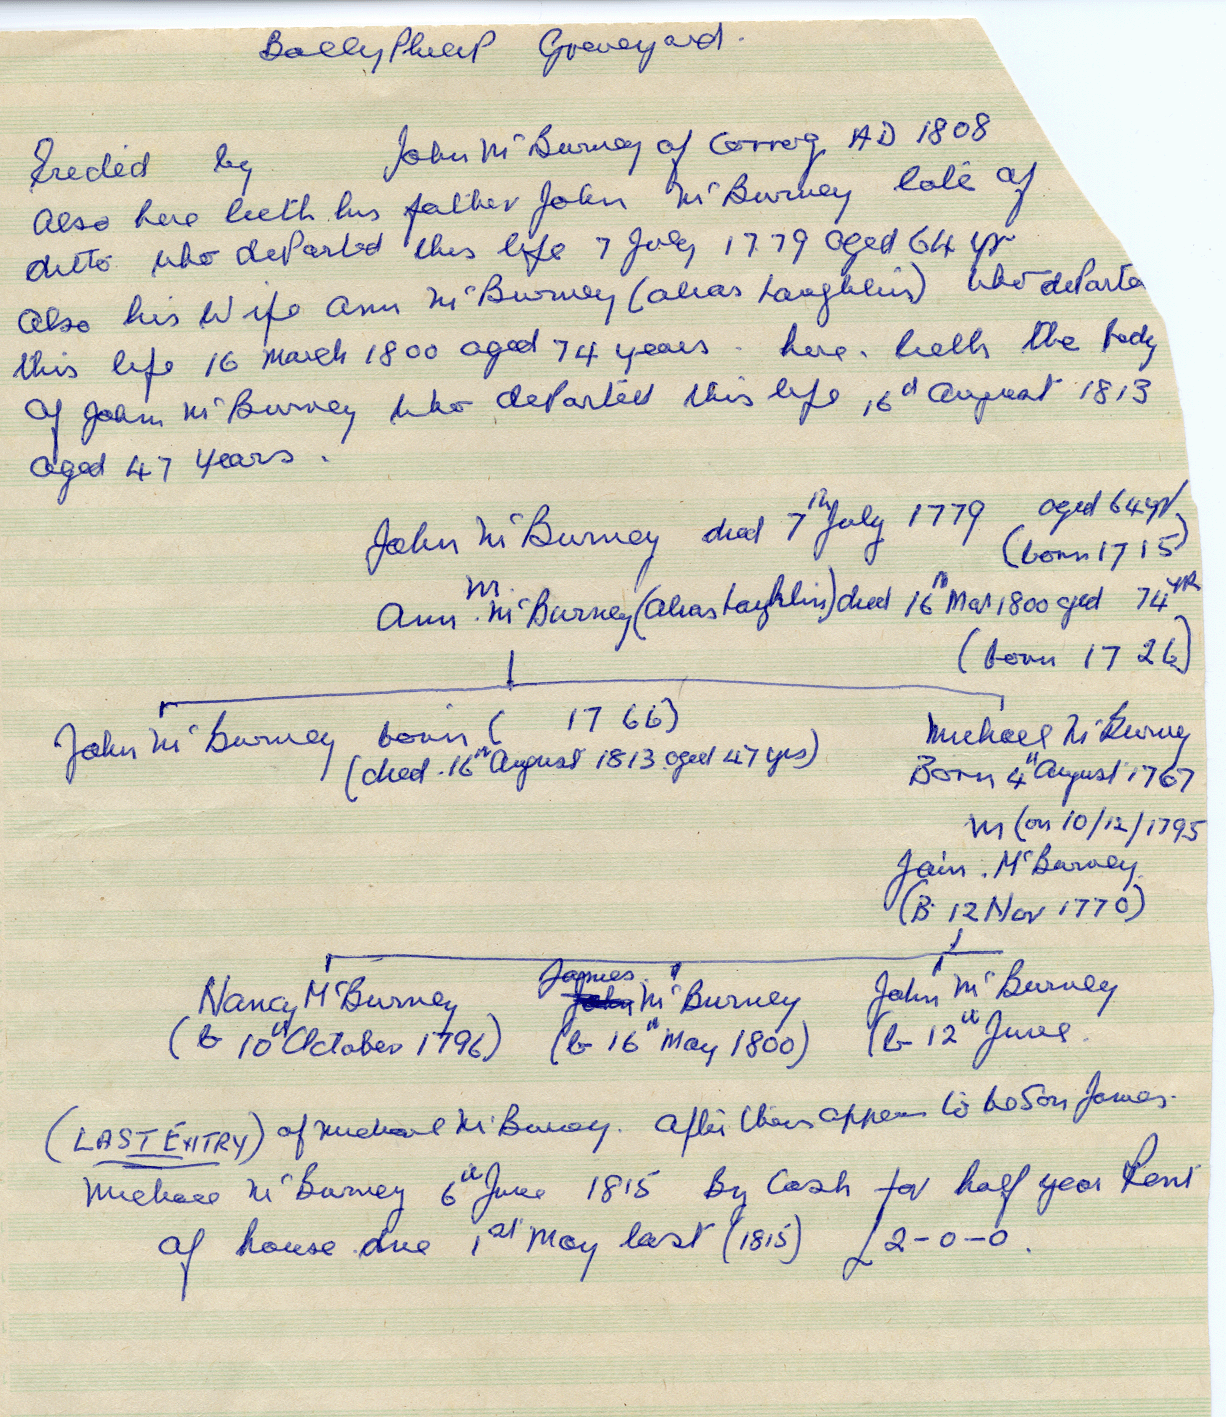 BallyPhilip Graveyard.
Erected by John McBurney of Corrog AD 1808
Also here lieth his father John McBurney late of
ditto who departed this life 7 July 1779 aged 64 yr
Also his Wife Ann McBurney (alias Laughlin) who departe
this life 16 March 1800 aged 74 years. here. lieth the body
of John McBurney who departed this life 16th August 1813
aged 47 years.
John McBurney died 7th July 1779 aged 64 yr
(born 1715)
m.
Ann. McBurney (alias Laughlin) died 16th Mar 1800 aged 74 yr
(born 1726)
John McBurney born ( 1766)
(died. 16th August 1813 aged 47 yrs)
Michael McBurney
Born 4th August 1767
m (on 10/12/1795
Jain. McBurney
(B. 12 Nov 1770)
Nancy McBurney
(b 10th October 1796)
James McBurney
(b 16th May 1800)
John McBurney
(b 12th June.
(LAST ENTRY) of Michael McBurney. After this appears to be Son James.
Michael McBurney 6th June 1815 By Cash for half year Rent
of house due 1st May last (1815) £2-0-0.